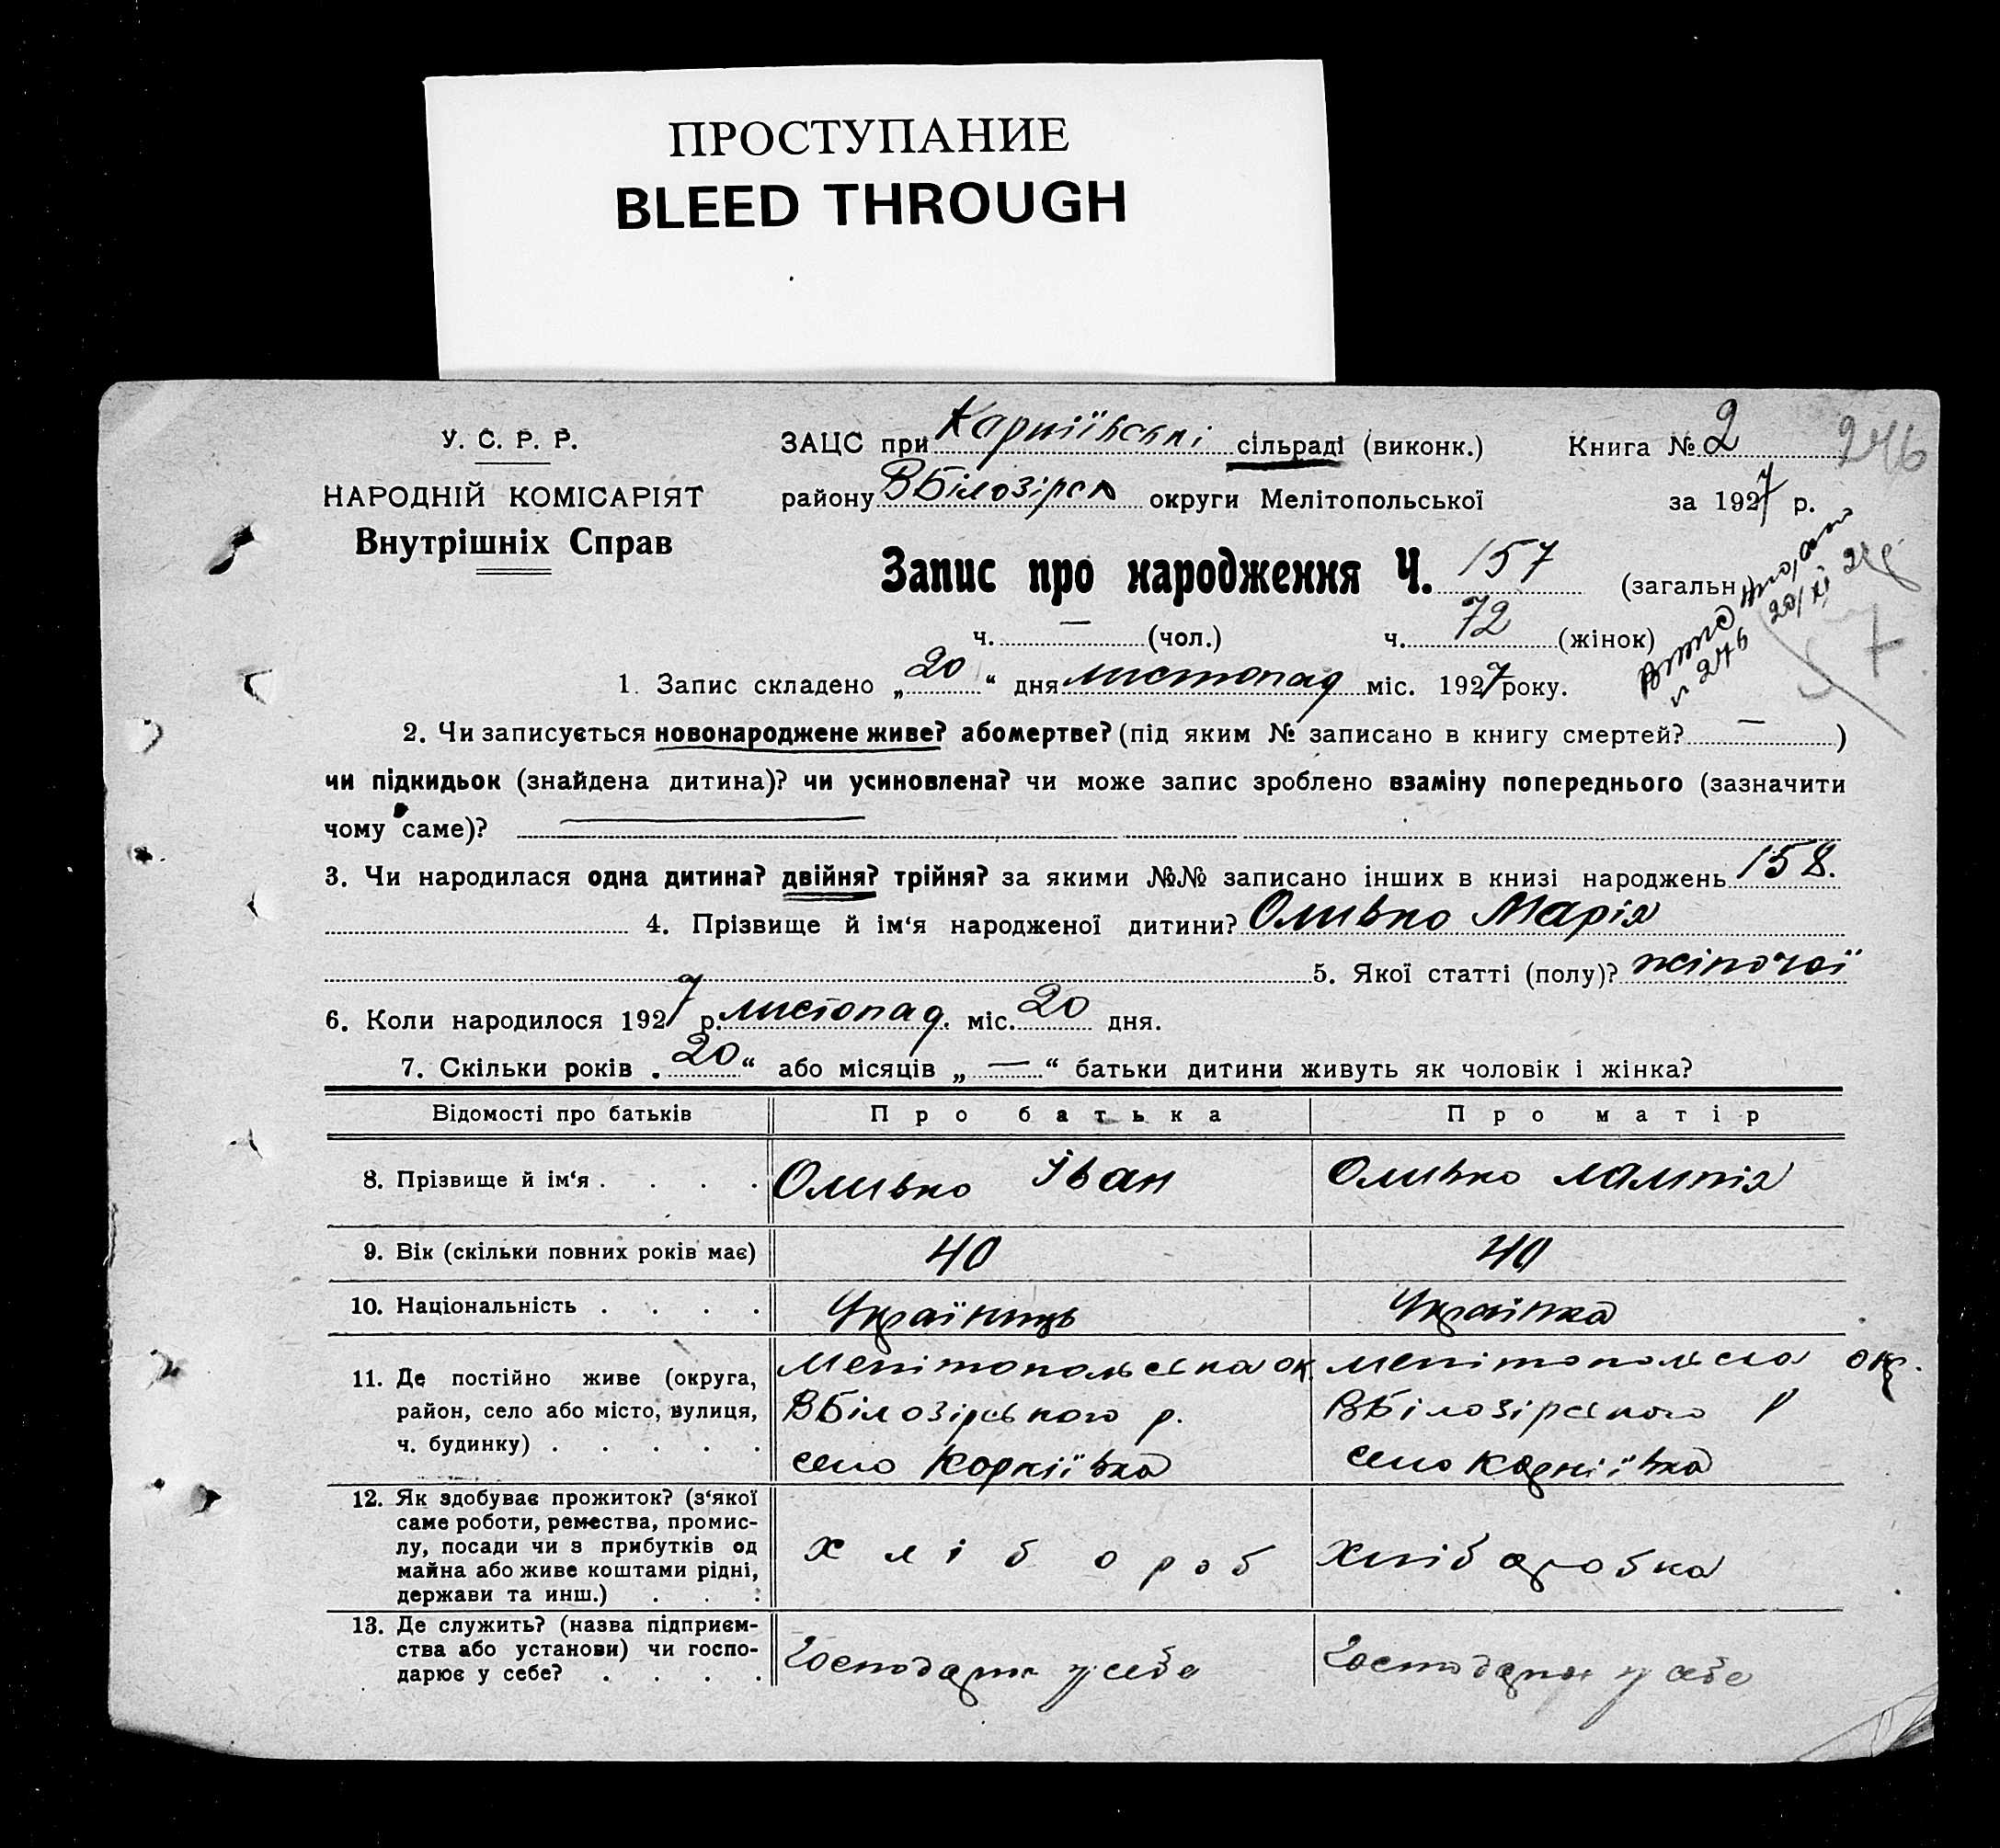 ПРОСТУПАНИЕ
BLEED THROUGH
У. С. Р. Р.
НАРОДНІЙ КОМІСАРІЯТ
Внутрішніх Справ
ЗАЦС при Карніївські сільраді (виконк.) Книга № 2 246
району ВБілозірск округи Мелітопольської за 1927 р.
Запис про народження Ч. 157 (загальн.)
ч. — (чол.) ч. 72 (жінок)
1. Запис складено „20“ дня листопад міс. 1927 року.
2. Чи записується новонароджене живе? або мертве? (під яким № записано в книгу смертей? — )
чи підкидьок (знайдена дитина)? чи усиновлена? чи може запис зроблено взаміну попереднього (зазначити
чому саме)? —
3. Чи народилася одна дитина? двійня? трійня? за якими №№ записано інших в книзі народжень 158.
4. Прізвище й ім‘я народженої дитини? Оливко Марія
5. Якої статті (полу)? жіночої
6. Коли народилося 1927 р. листопад. міс. 20 дня.
7. Скільки років „20“ або місяців „—“ батьки дитини живуть як чоловік і жінка?
Відомості про батьків Про батька Про матір
8. Прізвище й ім‘я . . . . Оливко Іван Оливко Лампія
9. Вік (скільки повних років має) 40 40
10. Національність . . . . Українець Українка
11. Де постійно живе (округа,
район, село або місто, вулиця,
ч. будинку) . . . . .
Мелітопольська ок.
ВБілозірського р.
село Корніївка
Мелітопольська окр.
ВБілозірського р
село Корніївка
12. Як здобуває прожиток? (з‘якої
саме роботи, ремества, промис-
лу, посади чи з прибутків од
майна або живе коштами рідні,
держави та инш.) . . .
хлібороб
хліборобка
13. Де служить? (назва підприєм-
ства або установи) чи госпо-
дарює у себе? . . . .
Господарює у себе
Господарює у себе